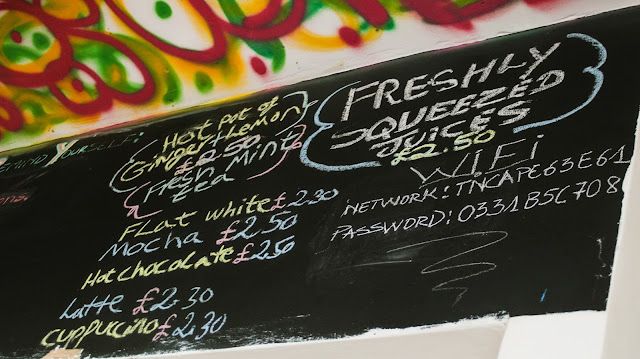 YOURSELF:
Hot pot of
Ginger & lemon
£2.50
Fresh Mint
tea
Flat white £2.30
Mocha £2.50
Hot chocolate £2.50
Latte £2.30
cuppuccino £2.30
FRESHLY
SQUEEZED
JUICES
£2.50
WiFi
NETWORK: TNCAPE63E61
PASSWORD: 0331B5C708